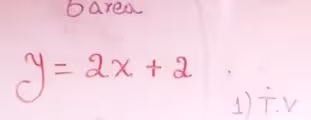 6 area
y = 2x + 2
1) T.V